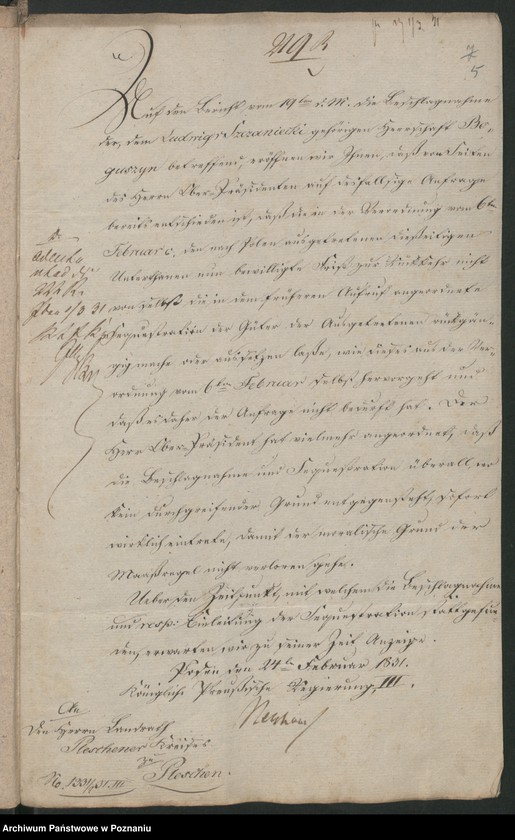 5
Auf den Bericht vom 19ten d. M. die Beschlagnahme
der, dem Ludwig v Szczaniecki gehörigen Herrschaft Bo-
guszyn betreffend eröffnen wir Ihnen, daß von Seiten
des Herrn Ober-Präsidenten auf desfallsige Anfrage
bereits entschieden ist, daß die in der Verordnung vom 6ten
Februar c. den nach Polen ausgetretenen diesseitigen
Unterthanen nun bewilligte Frist zur Rückkehr nicht
von selbst die in dem früheren Aufruf angeordnete
Sequestration der Güter der Ausgetretenen rückgän-
gig mache oder aussetzen lasse, wie dieses aus der Ver-
ordnung vom 6ten Februar selbst hervorgeht und
daß es daher der Anfrage nicht bedurft hat. Der
Herr Ober-Präsident hat vielmehr angeordnet, daß
die Beschlagnahme und Sequestration überall, wo
kein durchgreifender Grund entgegensteht, sofort
wirklich eintrete, damit der moralische Grund der
Maaßregel nicht verloren gehe.
Ueber den Zeitpunkt, mit welchem die Beschlagnahme
und resp: Einleitung der Sequestration stattgefun-
den, erwarten wir zu seiner Zeit Anzeige.
Posen den 24ten Februar 1831.
Königliche Preußische Regierung III.
An
den Herrn Landrath
Pleschener Kreises
zu
Pleschen.
No. 1331/31. III
Archiwum Państwowe w Poznaniu